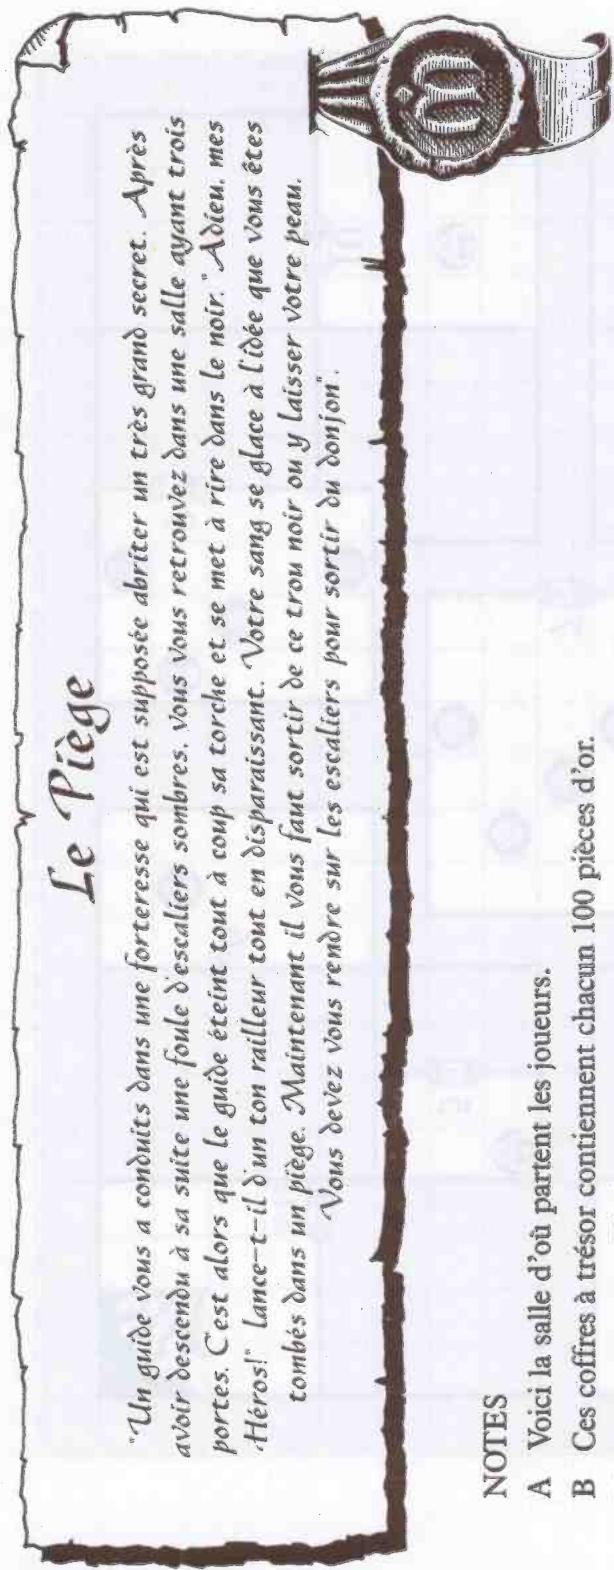 Le Piège
"Un guide vous a conduits dans une forteresse qui est supposée abriter un très grand secret. Après
avoir descendu à sa suite une foule d'escaliers sombres, vous vous retrouvez dans une salle ayant trois
portes. C'est alors que le guide éteint tout à coup sa torche et se met à rire dans le noir. "Adieu, mes
Héros!" lance-t-il d'un ton railleur tout en disparaissant. Votre sang se glace à l'idée que vous êtes
tombés dans un piège. Maintenant il vous faut sortir de ce trou noir ou y laisser votre peau.
Vous devez vous rendre sur les escaliers pour sortir du donjon".
NOTES
A Voici la salle d'où partent les joueurs.
B Ces coffres à trésor contiennent chacun 100 pièces d'or.